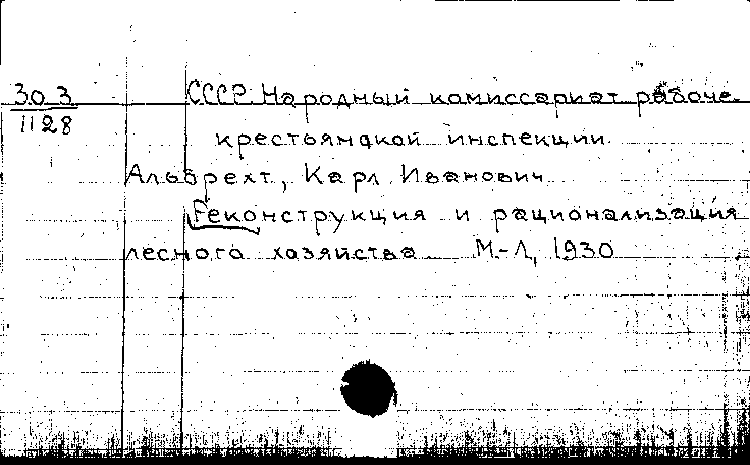 303 СССР. Народный комиссариат рабоче-
1128
крестьянской инспекции
Альбрехт, Карл Иванович
Реконструкция и рационализация
лесного хозяйства М-Л, 1930